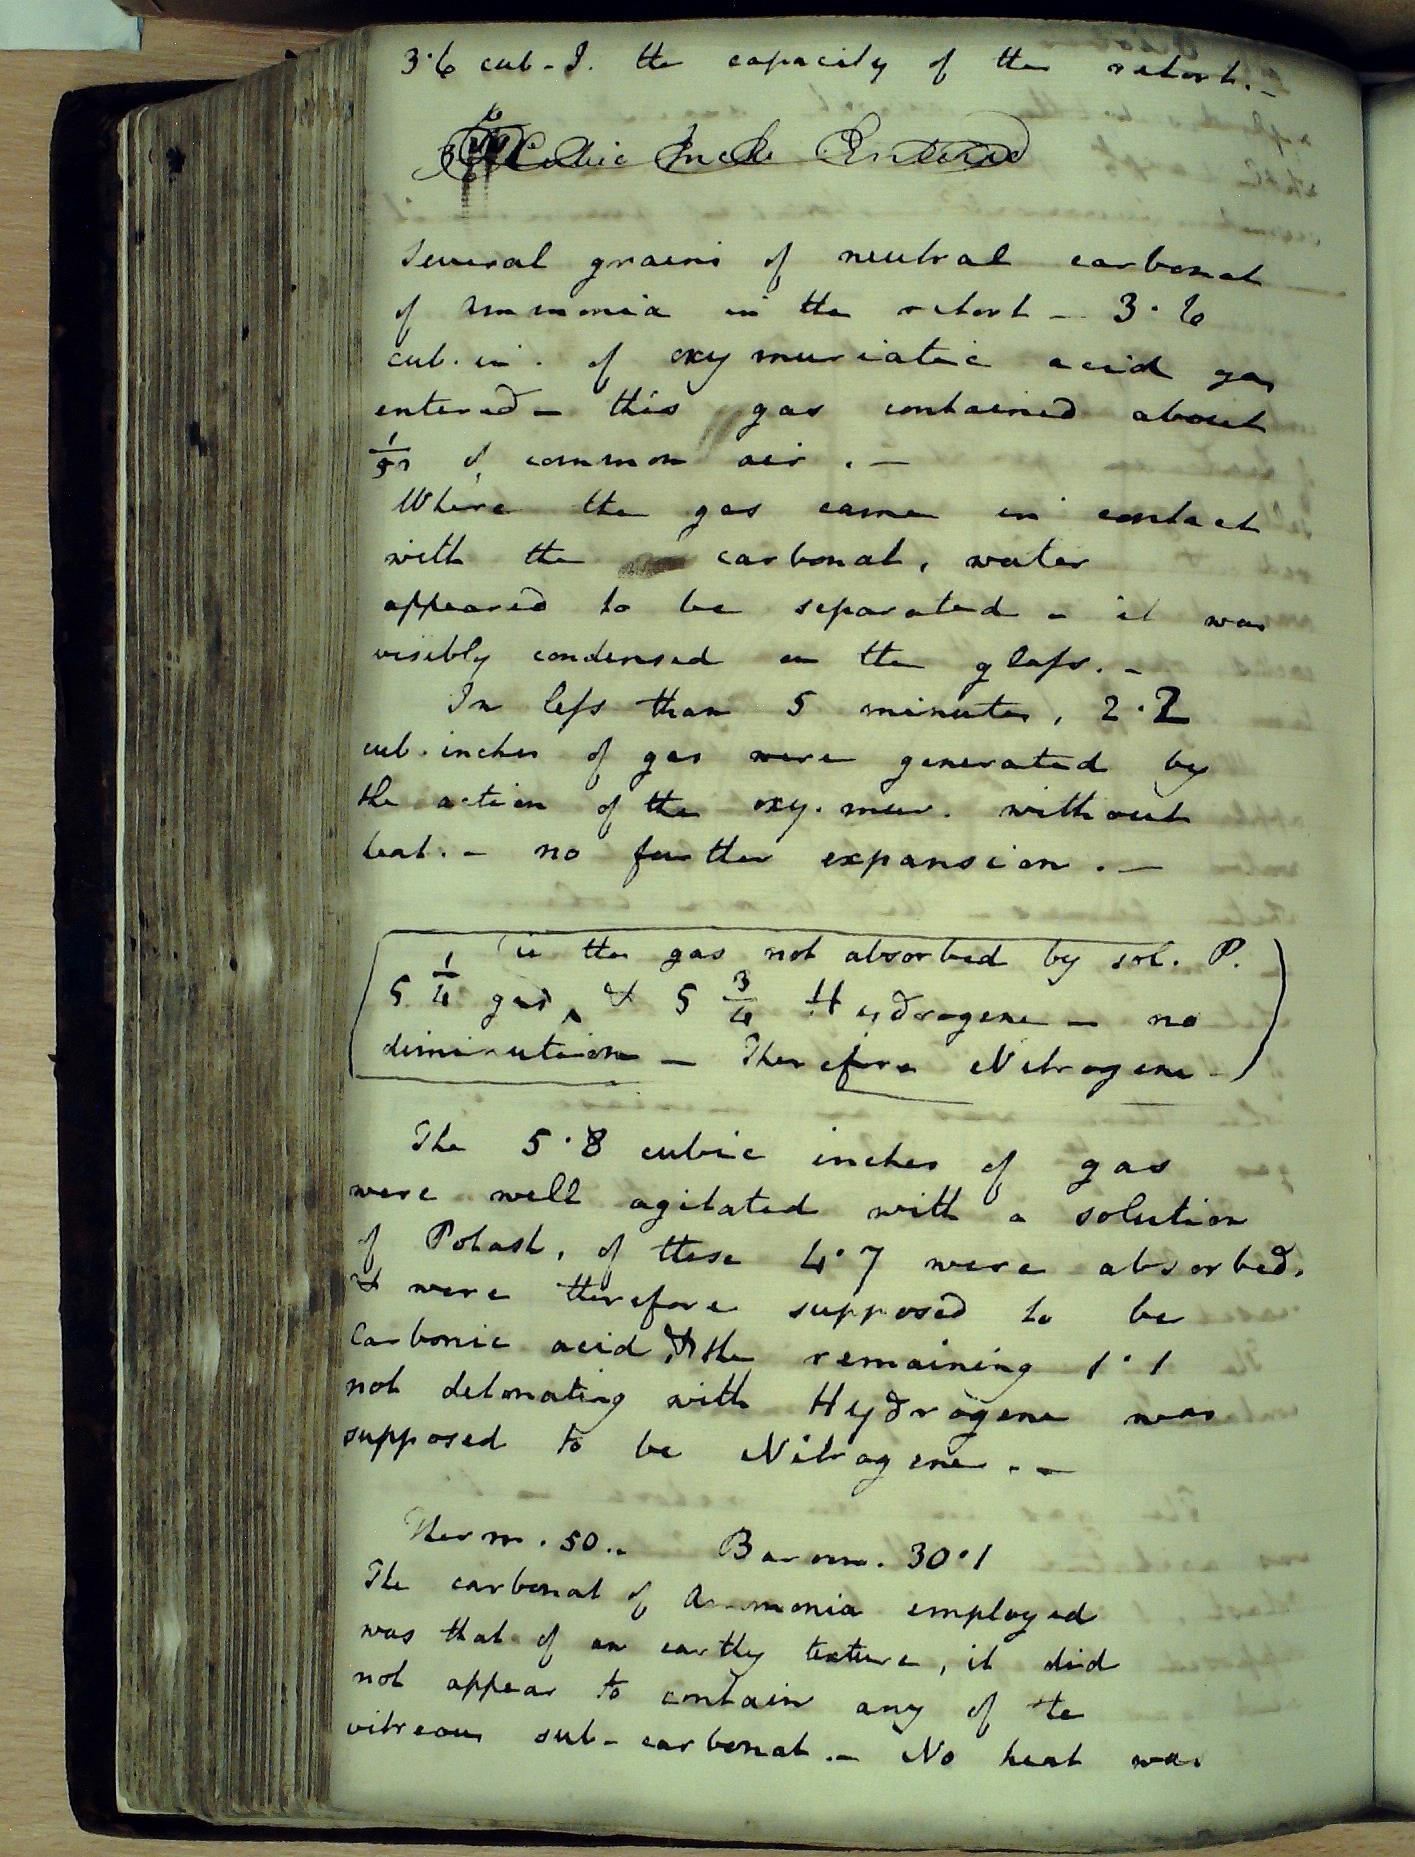 3·6 cub - I. the capacity of the retort. -
Cubic Inch Entered
Several grains of neutral carbonat
of ammonia in the retort - 3·6
cub. in. of oxymuriatic acid gas
entered - this gas contained about
of common air . -
Where the gas came in contact
with the carbonat, water
appeared to be separated - it was
visibly condensed on the glass. -
In less than 5 minutes, 2·2
cub. inches of gas were generated by
the action of the oxy. mur. without
heat. - no further expansion . -
ie the gas not absorbed by sol. P.
5 1/4 gas ‸ & 5 3/4 Hydrogene - no
diminution - Therefore Nitrogene -
The 5·8 cubic inches of gas
were well agitated with a solution
of Potash, of these 4·7 were absorbed,
& were therefore supposed to be
Carbonic acid, & the remaining 1·1
not detonating with Hydrogene was
supposed to be Nitrogene . -
Therm. 50.. Barom. 30·1
The carbonat of Ammonia employed
was that of an earthy texture, it did
not appear to contain any of the
vitreous sub-carbonat. - No heat was